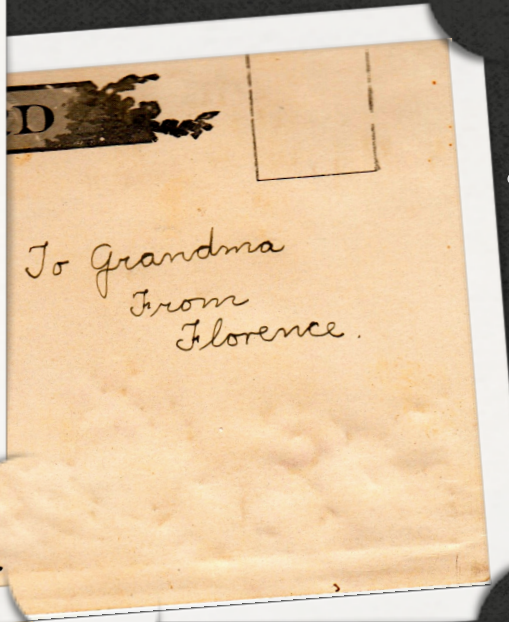 To Grandma
From
Florence.